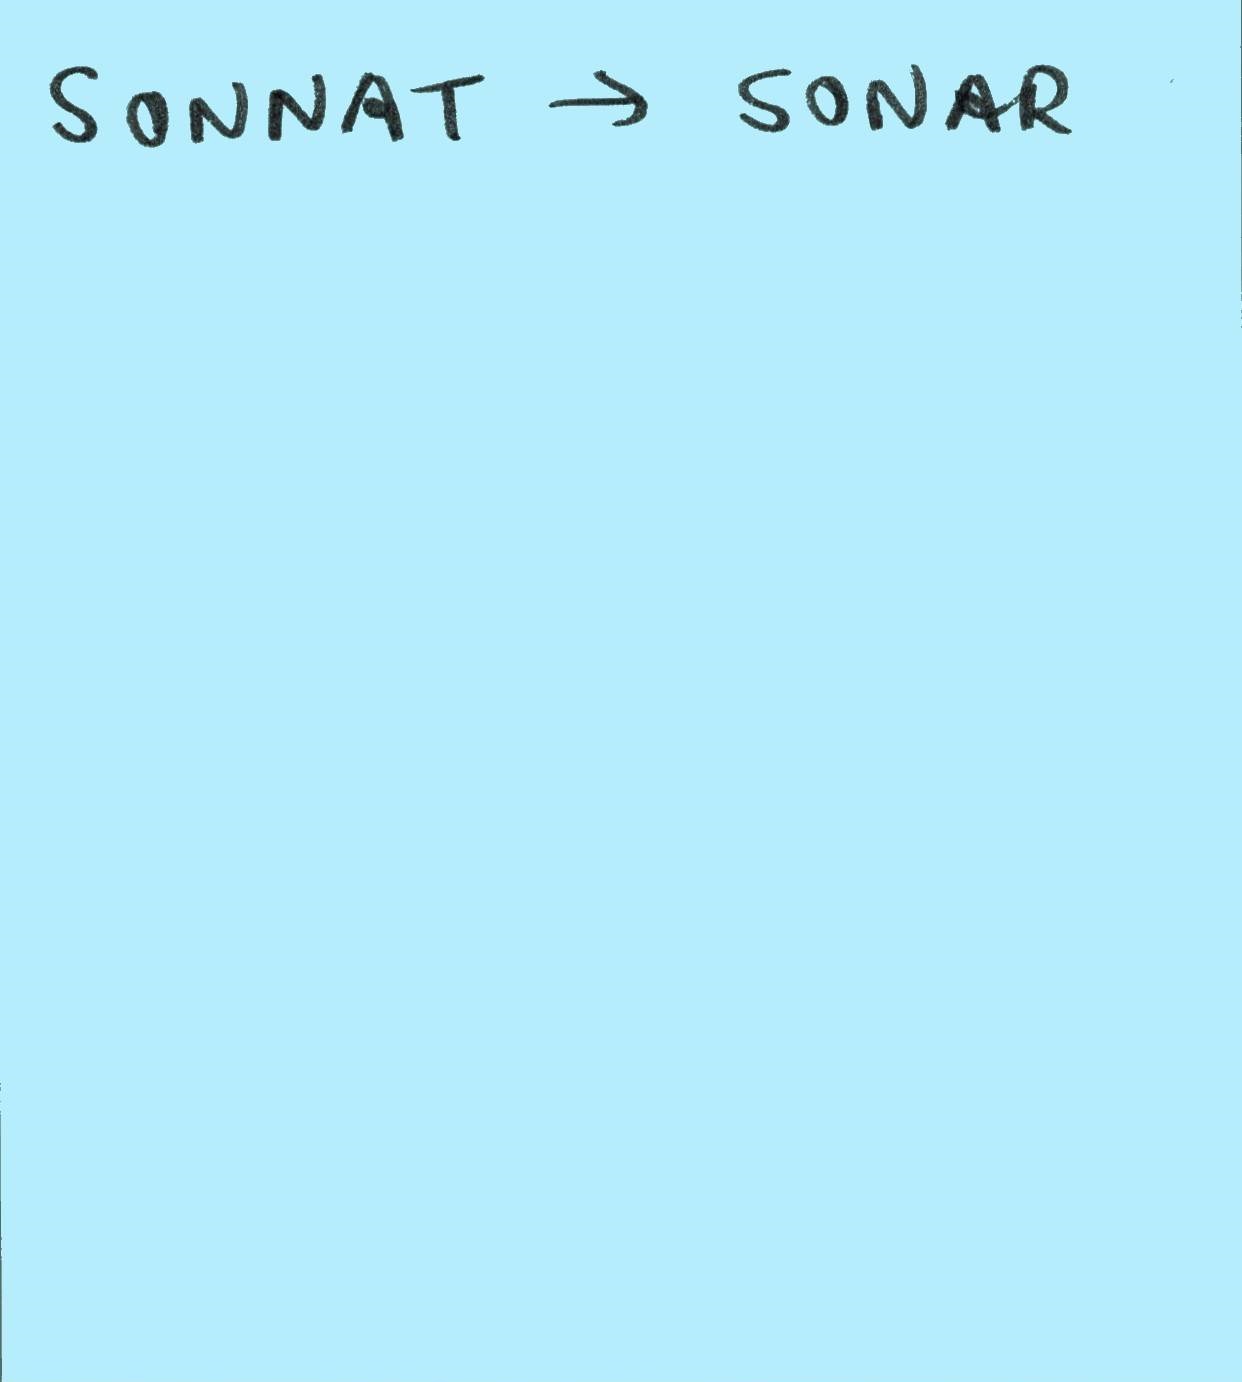 SONNAT → SONAR